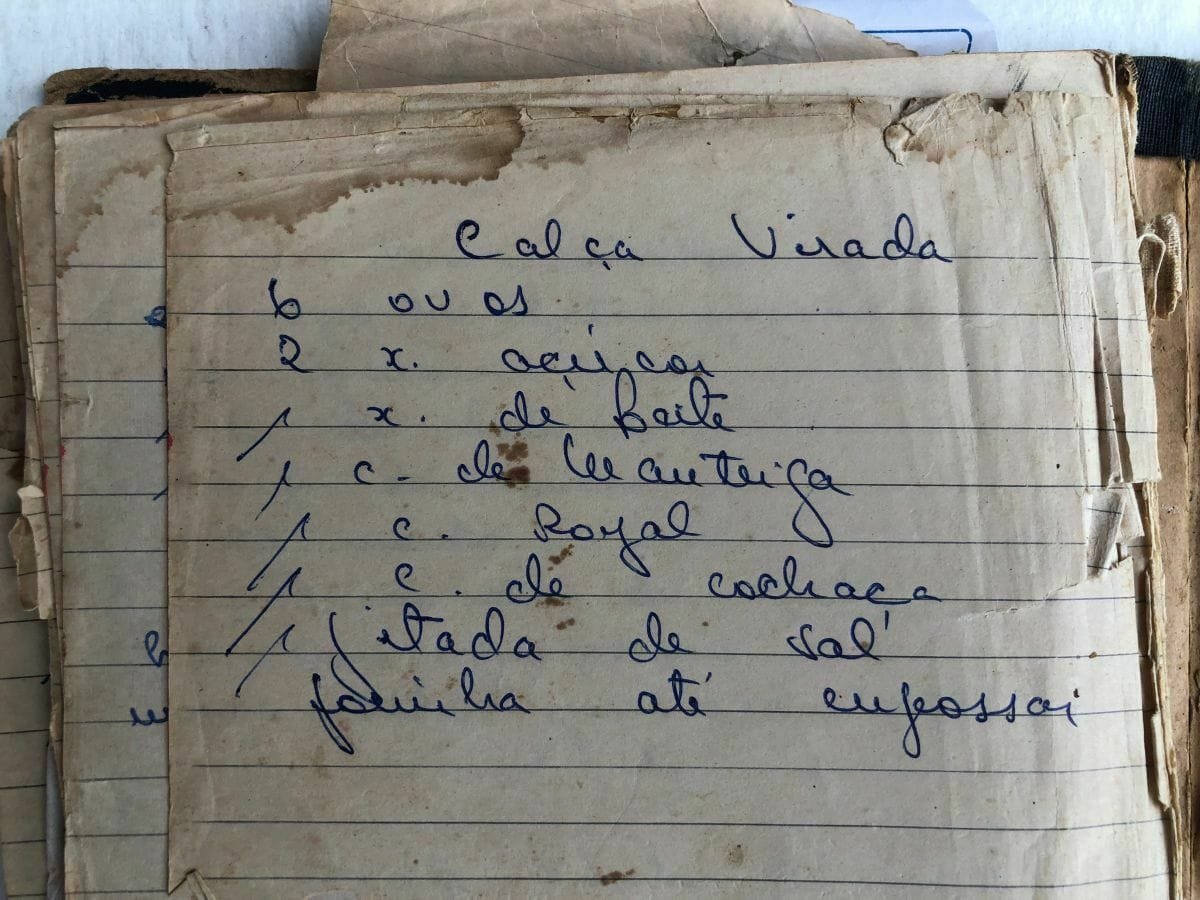 Calça Virada
6 ovos
2 x. açúcar
1 x. de leite
1 c. de Manteiga
1 c. Royal
1 c. de cachaça
1 pitada de sal
farinha até engrossar